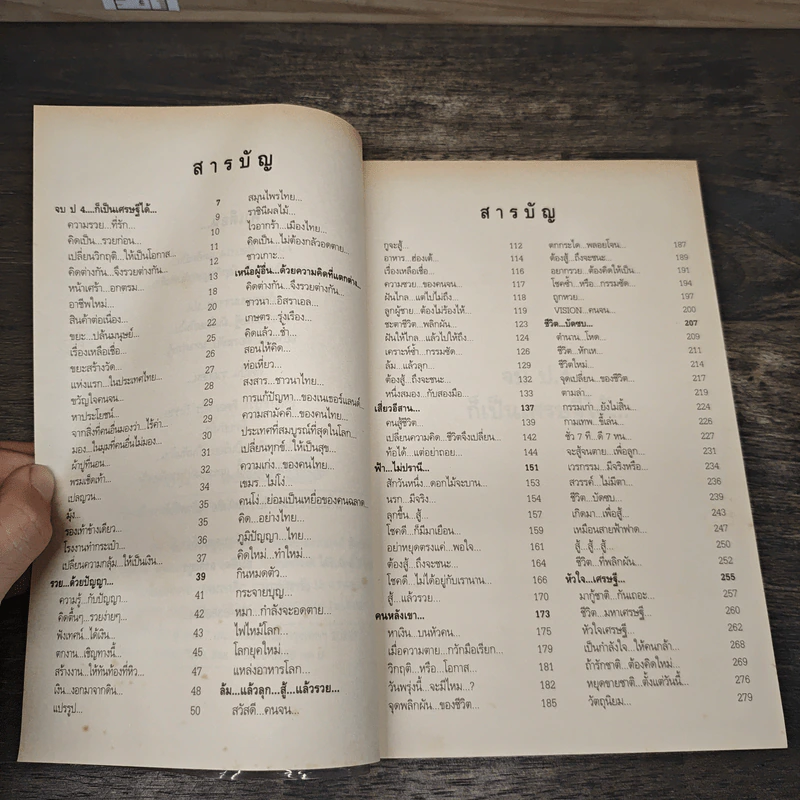 สารบัญ
จบ ป 4....ก็เป็นเศรษฐีได้... 7
ความรวย...ที่รัก... 9
คิดเป็น...รวยก่อน... 10
เปลี่ยนวิกฤติ...ให้เป็นโอกาส... 11
คิดต่างกัน...จึงรวยต่างกัน... 12
หน้าเศร้า...อกตรม... 13
อาชีพใหม่... 18
สินค้าต่อเนื่อง... 20
ขยะ...ปล้นมนุษย์... 22
เรื่องเหลือเชื่อ... 25
ขยะสร้างวัด... 26
แห่งแรก...ในประเทศไทย... 27
ขวัญใจคนจน... 28
หาประโยชน์... 29
จากสิ่งที่คนอื่นมองว่า...ไร้ค่า... 30
มอง...ในมุมที่คนอื่นไม่มอง... 31
ผ้าปูที่นอน... 32
พรมเช็ดเท้า... 34
เปลญวน... 35
มุ้ง... 35
รองเท้าข้างเดียว... 36
โรงงานทำกระเป๋า... 37
เปลี่ยนความกลุ้ม...ให้เป็นเงิน...
รวย...ด้วยปัญญา... 39
ความรู้...กับปัญญา... 41
คิดตื้นๆ...รวยง่ายๆ... 42
ฟังเทศน์...ได้เงิน... 43
ตกงาน...เชิญทางนี้... 45
สร้างงาน...ให้ทันท้องที่หิว... 47
เงิน...งอกมาจากดิน... 48
แปรรูป... 50
สมุนไพรไทย...
ราชินีผลไม้...
ไวอากร้า...เมืองไทย...
คิดเป็น...ไม่ต้องกลัวอดตาย...
ชาวเกาะ...
เหนือผู้อื่น...ด้วยความคิดที่แตกต่าง...
คิดต่างกัน...จึงรวยต่างกัน...
ชาวนา...อิสราเอล...
เกษตร...รุ่งเรือง...
คิดแล้ว...ช้ำ...
สอนให้คิด...
ท่อเหี่ยว...
สงสาร...ชาวนาไทย...
การแก้ปัญหา...ของเนเธอร์แลนด์...
ความสามัคคี...ของคนไทย...
ประเทศที่สมบูรณ์ที่สุดในโลก...
เปลี่ยนทุกข์...ให้เป็นสุข...
ความเก่ง...ของคนไทย...
เขมร...ไม่โง่...
คนโง่...ย่อมเป็นเหยื่อของคนฉลาด...
คิด...อย่างไทย...
ภูมิปัญญา...ไทย...
คิดใหม่...ทำใหม่...
กินหมดตัว...
กระจายบุญ...
หมา...กำลังจะอดตาย...
ไฟไหม้โลก...
โลกยุคใหม่...
แหล่งอาหารโลก...
ล้ม...แล้วลุก...สู้...แล้วรวย...
สวัสดี...คนจน...
สารบัญ
กูจะสู้... 112
อาหาร...ฮ่องเต้... 114
เรื่องเหลือเชื่อ... 116
ความซวย...ของคนจน... 117
ฝันไกล...แต่ไปไม่ถึง... 118
ลูกผู้ชาย...ต้องไม่ร้องไห้... 119
ชะตาชีวิต...พลิกผัน... 123
ฝันให้ไกล...แล้วไปให้ถึง... 124
เคราะห์ซ้ำ...กรรมซัด... 126
ล้ม...แล้วลุก... 129
ต้องสู้...ถึงจะชนะ... 132
หนึ่งสมอง...กับสองมือ... 133
เสี่ยวอีสาน... 137
คนสู้ชีวิต... 139
เปลี่ยนความคิด...ชีวิตจึงเปลี่ยน... 142
ท้อได้...แต่อย่าถอย... 144
ฟ้า...ไม่ปรานี... 151
สักวันหนึ่ง...ดอกไม้จะบาน... 153
นรก...มีจริง... 154
ลุกขึ้น...สู้... 157
โชคดี...ก็มีมาเยือน... 159
อย่าหยุดตรงแค่...พอใจ... 161
ต้องสู้...ถึงจะชนะ... 164
โชคดี...ไม่ได้อยู่กับเรานาน... 166
สู้...แล้วรวย... 170
คนหลังเขา... 173
หาเงิน...บนหัวคน... 175
เมื่อความตาย...กวักมือเรียก... 179
วิกฤติ...หรือ...โอกาส... 181
วันพรุ่งนี้...จะมีไหม...? 182
จุดพลิกผัน...ของชีวิต... 185
ตกกระได...พลอยโจน... 187
ต้องสู้...ถึงจะชนะ... 189
อยากรวย...ต้องคิดให้เป็น... 191
โชคช้ำ...หรือ...กรรมซัด... 194
ถูกหวย... 197
VISION...คนจน... 200
ชีวิต...บัดซบ... 207
ตำนาน...โหด... 209
ชีวิต...หักเห... 211
ชีวิตใหม่... 214
จุดเปลี่ยน...ของชีวิต... 217
ตามล่า... 219
กรรมเก่า...ยังไม่สิ้น... 224
กามเทพ...ขี้เล่น... 226
ชั่ว 7 ที...ดี 7 หน... 227
จะสู้จนตาย...เพื่อลูก... 231
เวรกรรม...มีจริงหรือ... 234
สวรรค์...ไม่มีตา... 236
ชีวิต...บัดซบ... 239
เกิดมา...เพื่อสู้... 243
เหมือนสายฟ้าฟาด... 247
สู้...สู้...สู้... 250
ชีวิต...ที่พลิกผัน... 252
หัวใจ...เศรษฐี... 255
มากู้ชาติ...กันเถอะ... 257
ชีวิต...มหาเศรษฐี... 260
หัวใจเศรษฐี... 262
เป็นกำลังใจ...ให้คนกล้า... 268
ถ้ารักชาติ...ต้องคิดใหม่... 269
หยุดขายชาติ...ตั้งแต่วันนี้... 276
วัตถุนิยม... 279